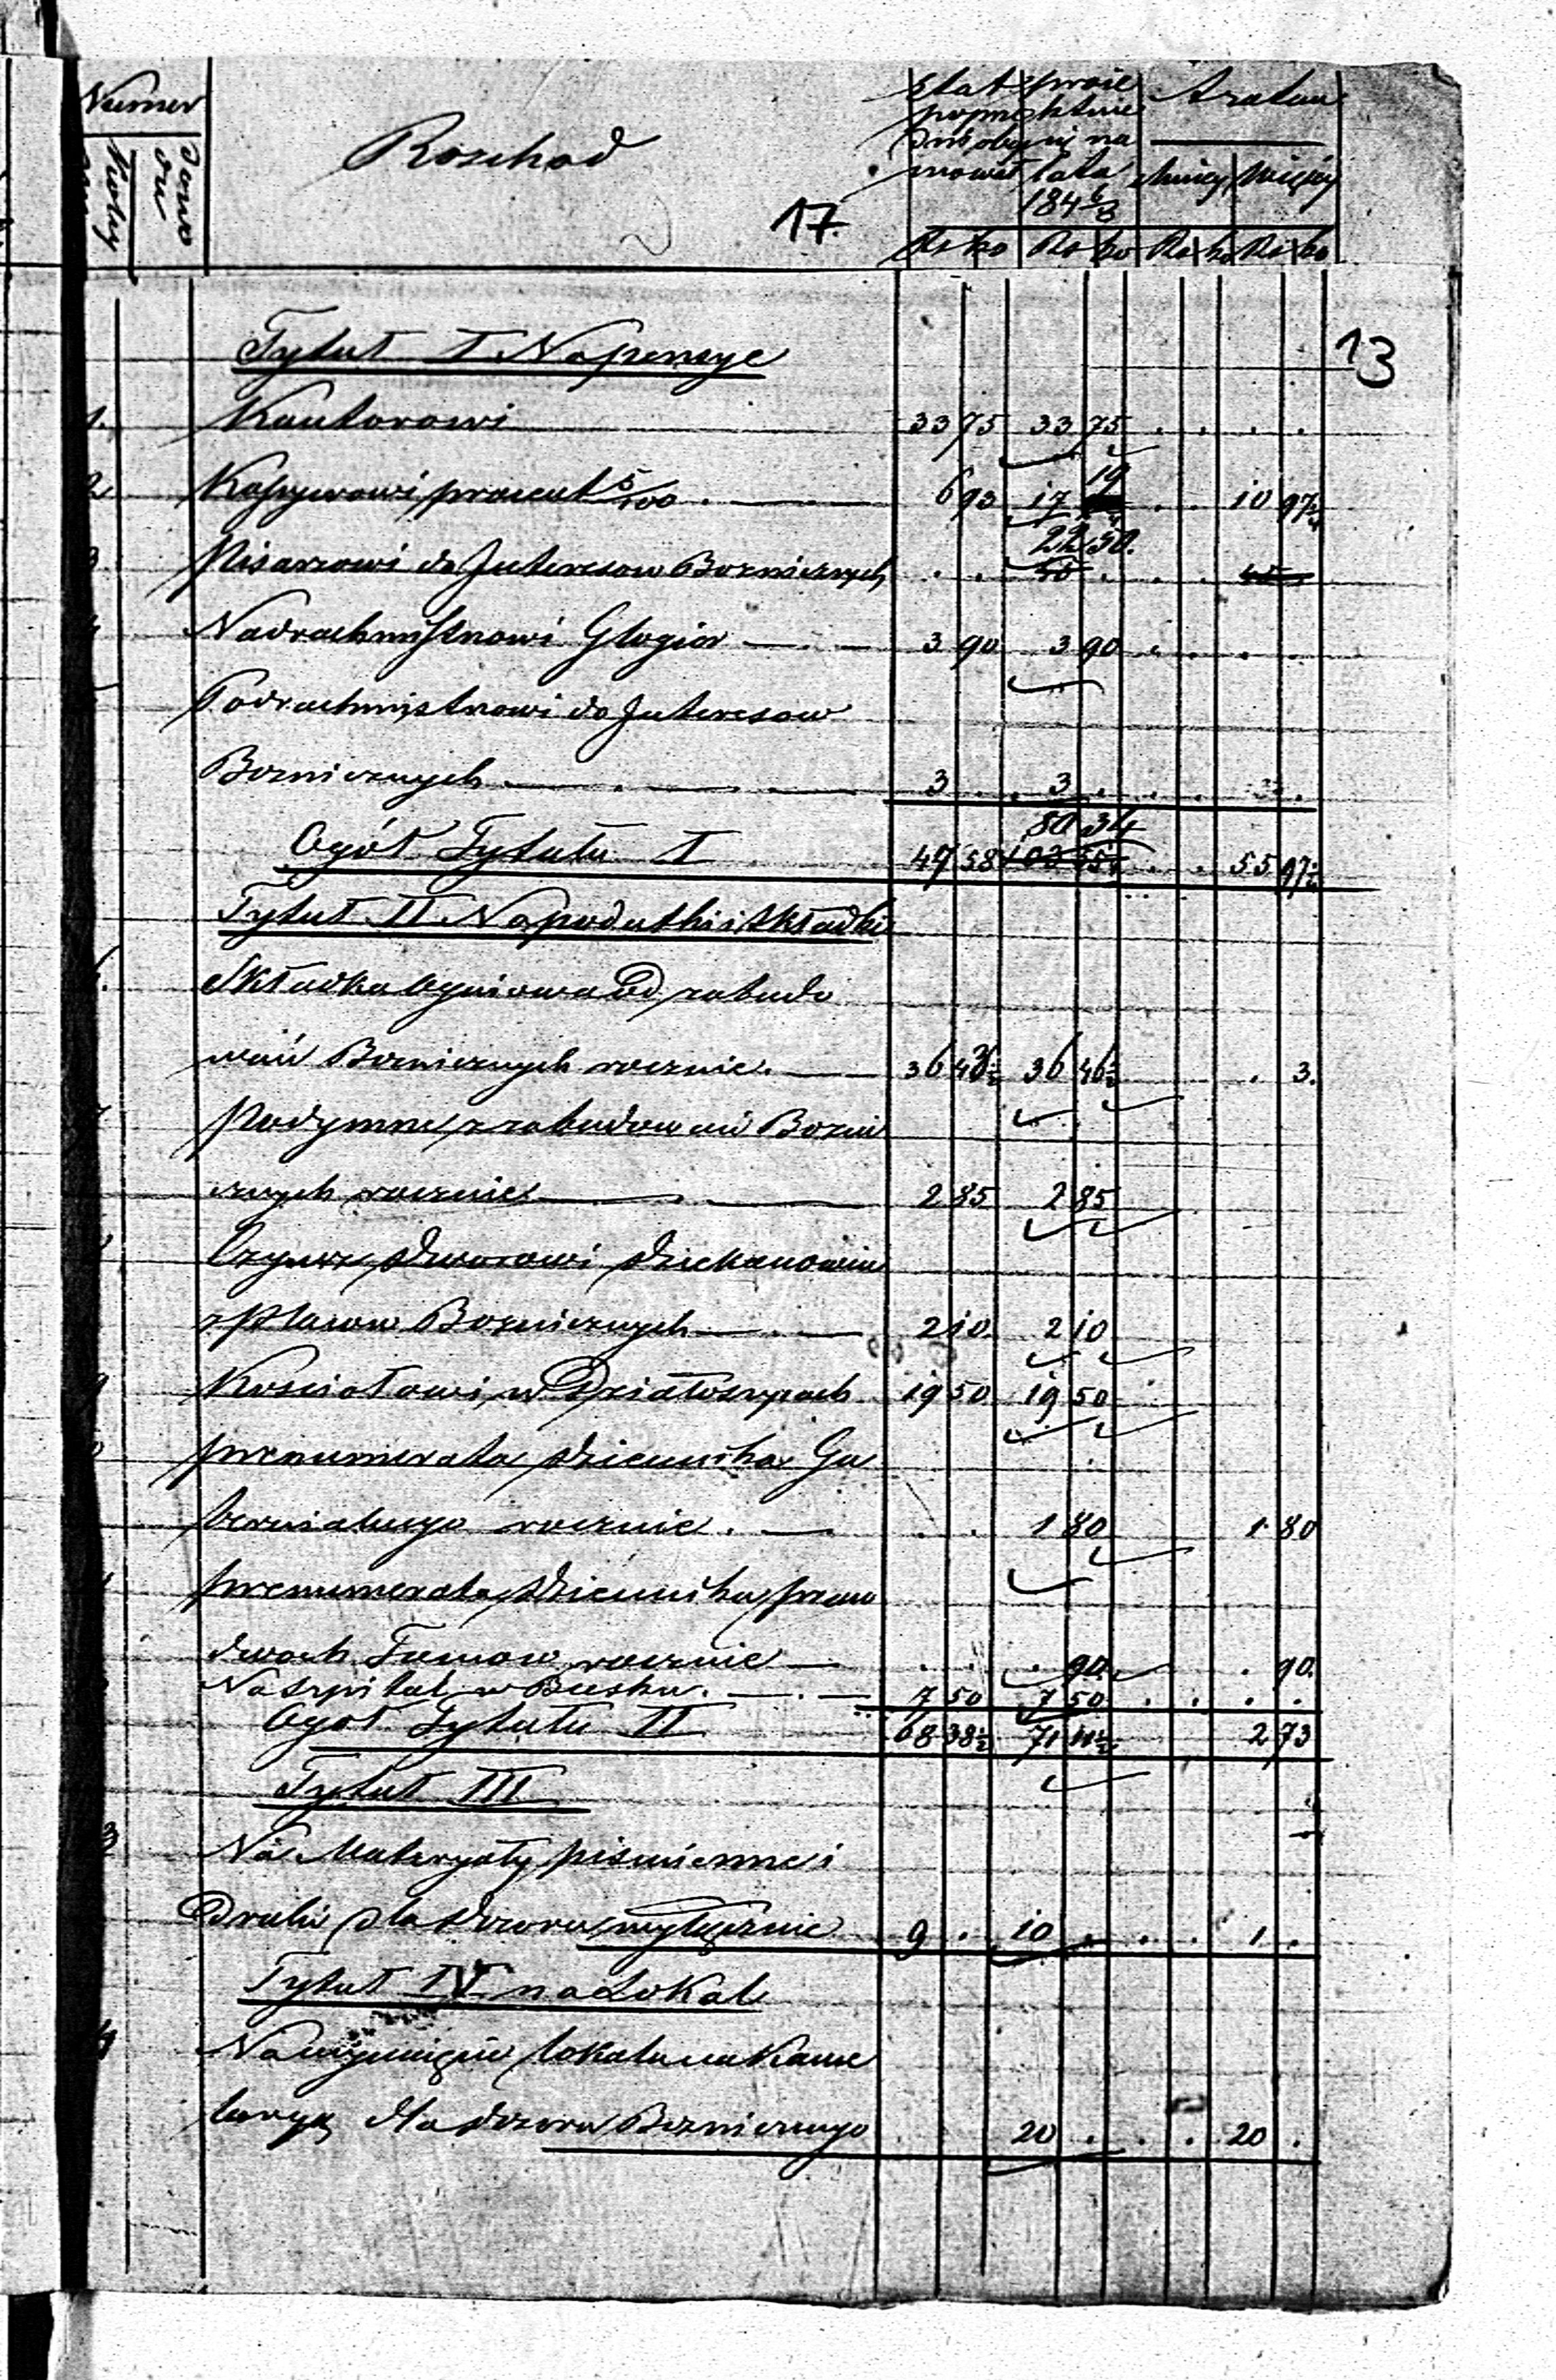 Numer
Kolej
Dowo
du
Roschod
17.
Etat proie
poprze ktuie
dni oby na
mowat lata
1846/8
A zatem
Mniej Więcej
Rs ko Rs ko Rs ko Rs ko
13
Tytuł I Na pensye
1. Kantorowi 33 75 33 75 . . . .
2 Kassyerowi procent 5/100 . 6 93 17 19 . . 10 97 1/4
3 Pisarzowi do Interesow Bozniczych . . 22 50. 45 . . . 45
4 Nadrachmistrzowi Glogier 3 90 3 90 . . . .
5 Podrachmistrzowi do Interesow
Bozniczych 3 . 3 . . . .
80 34
Ogół Tytułu I 47 58 103 55 . . 55 97 1/2
Tytuł II Na podatki i składki
6. Składka Ogniowa Od zabudo
wań Bozniczych rocznie. 36 43 1/2 36 46 1/2 . 3.
7 Podymne z zabudowań Bozni
cznych rocznie 2 85 2 85
Czynsz Dworowi Dziekanowice
z Placow Bozniczych 2 10 2 10
9 Kosciołowi w Działoszycach 19 50 19 50
prenumerata Dziennika Gu
bernialnego rocznie . . . 1 80 1 80
prenumerata Dziennika praw
dwoch Tomow rocznie . . . 90 . 90.
Na szpital w Busku. 7 50 7 50 . . . .
Ogół Tytułu II 68 38 1/2 71 11 1/2 2 73
Tytuł III
3 Na Materyały pismienne i
Druki dla Dozoru wyłącznie 9 . 10 . . . 1 .
Tytuł IV na Lokal
Na wynajęcie lokalu na Kance
laryą dla Dozoru Bozniczego 20 . . . 20 .